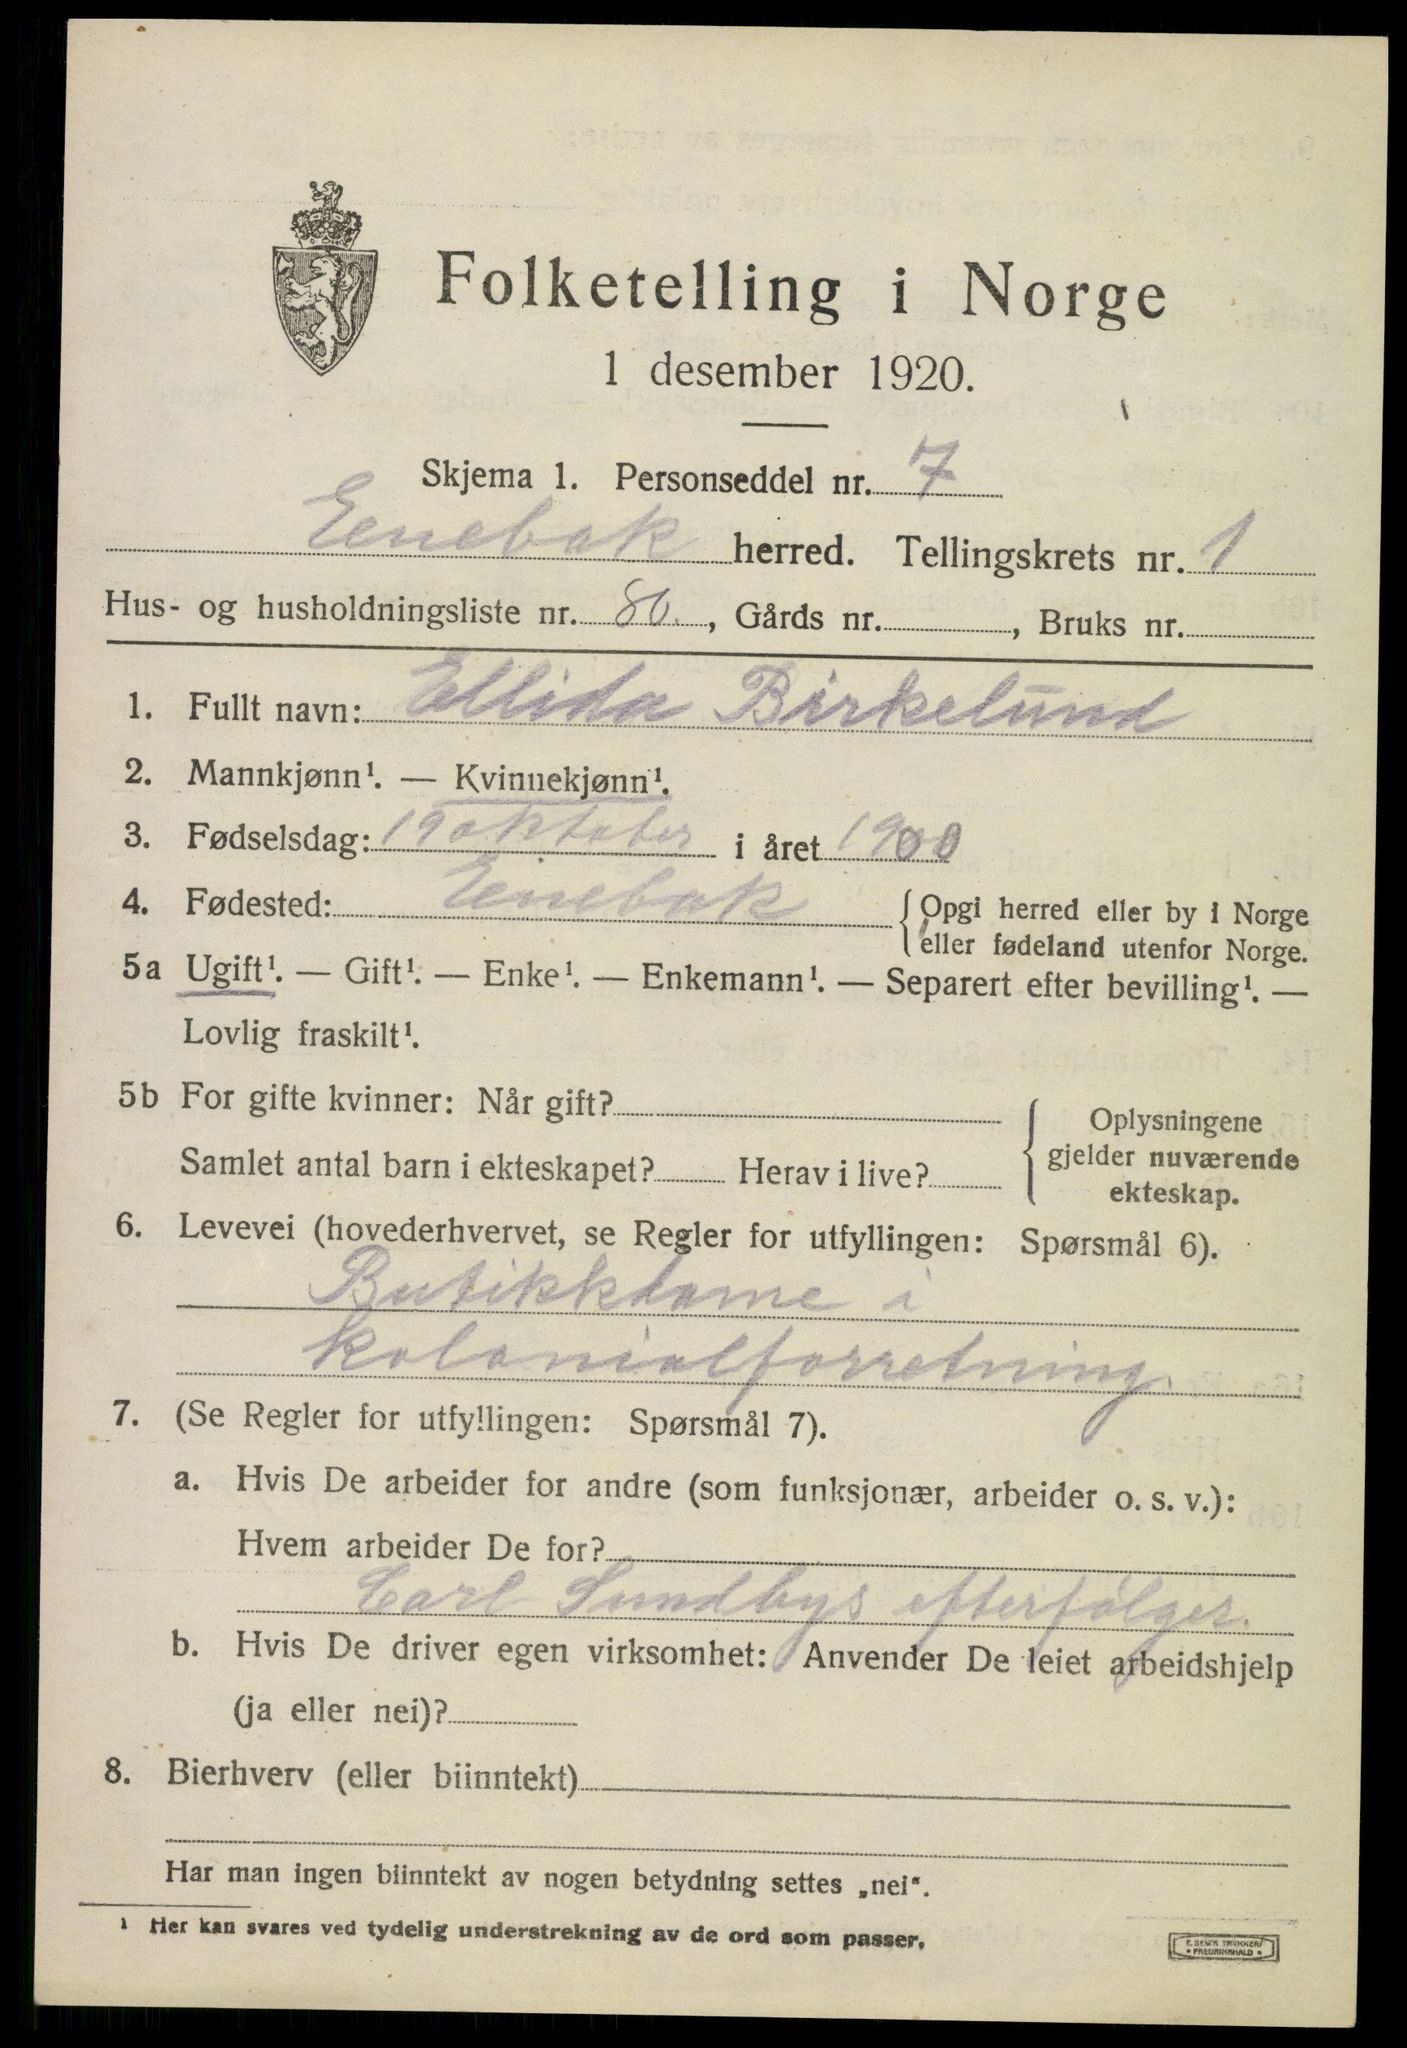 Folketelling i Norge
1 desember 1920.
Skjema 1. Personseddel nr. 7
Enebak herred. Tellingskrets nr. 1
Hus- og husholdningsliste nr. 80., Gårds nr. , Bruks nr.
1. Fullt navn: Ellida Birkelund
2. Mannkjønn¹. — Kvinnekjønn¹.
3. Fødselsdag: 19 oktober i året 1900
4. Fødested: Enebak {Opgi herred eller by i Norge
eller fødeland utenfor Norge.
5a Ugift¹. — Gift¹. — Enke¹. — Enkemann¹. — Separert efter bevilling¹. —
Lovlig fraskilt¹.
5b For gifte kvinner: Når gift? { Oplysningene
gjelder nuværende
Samlet antal barn i ekteskapet? Herav i live?
ekteskap.
6. Levevei (hovederhvervet, se Regler for utfyllingen: Spørsmål 6).
Butikkdame i
kolonialforretning
7. (Se Regler for utfyllingen: Spørsmål 7).
a. Hvis De arbeider for andre (som funksjonær, arbeider o. s. v.):
Hvem arbeider De for?
Carl Sundbys efterfølger.
b. Hvis De driver egen virksomhet: Anvender De leiet arbeidshjelp
(ja eller nei)?
8. Bierhverv (eller biinntekt)
Har man ingen biinntekt av nogen betydning settes „nei“.
¹ Her kan svares ved tydelig understrekning av de ord som passer.
FREDRIKSHALD